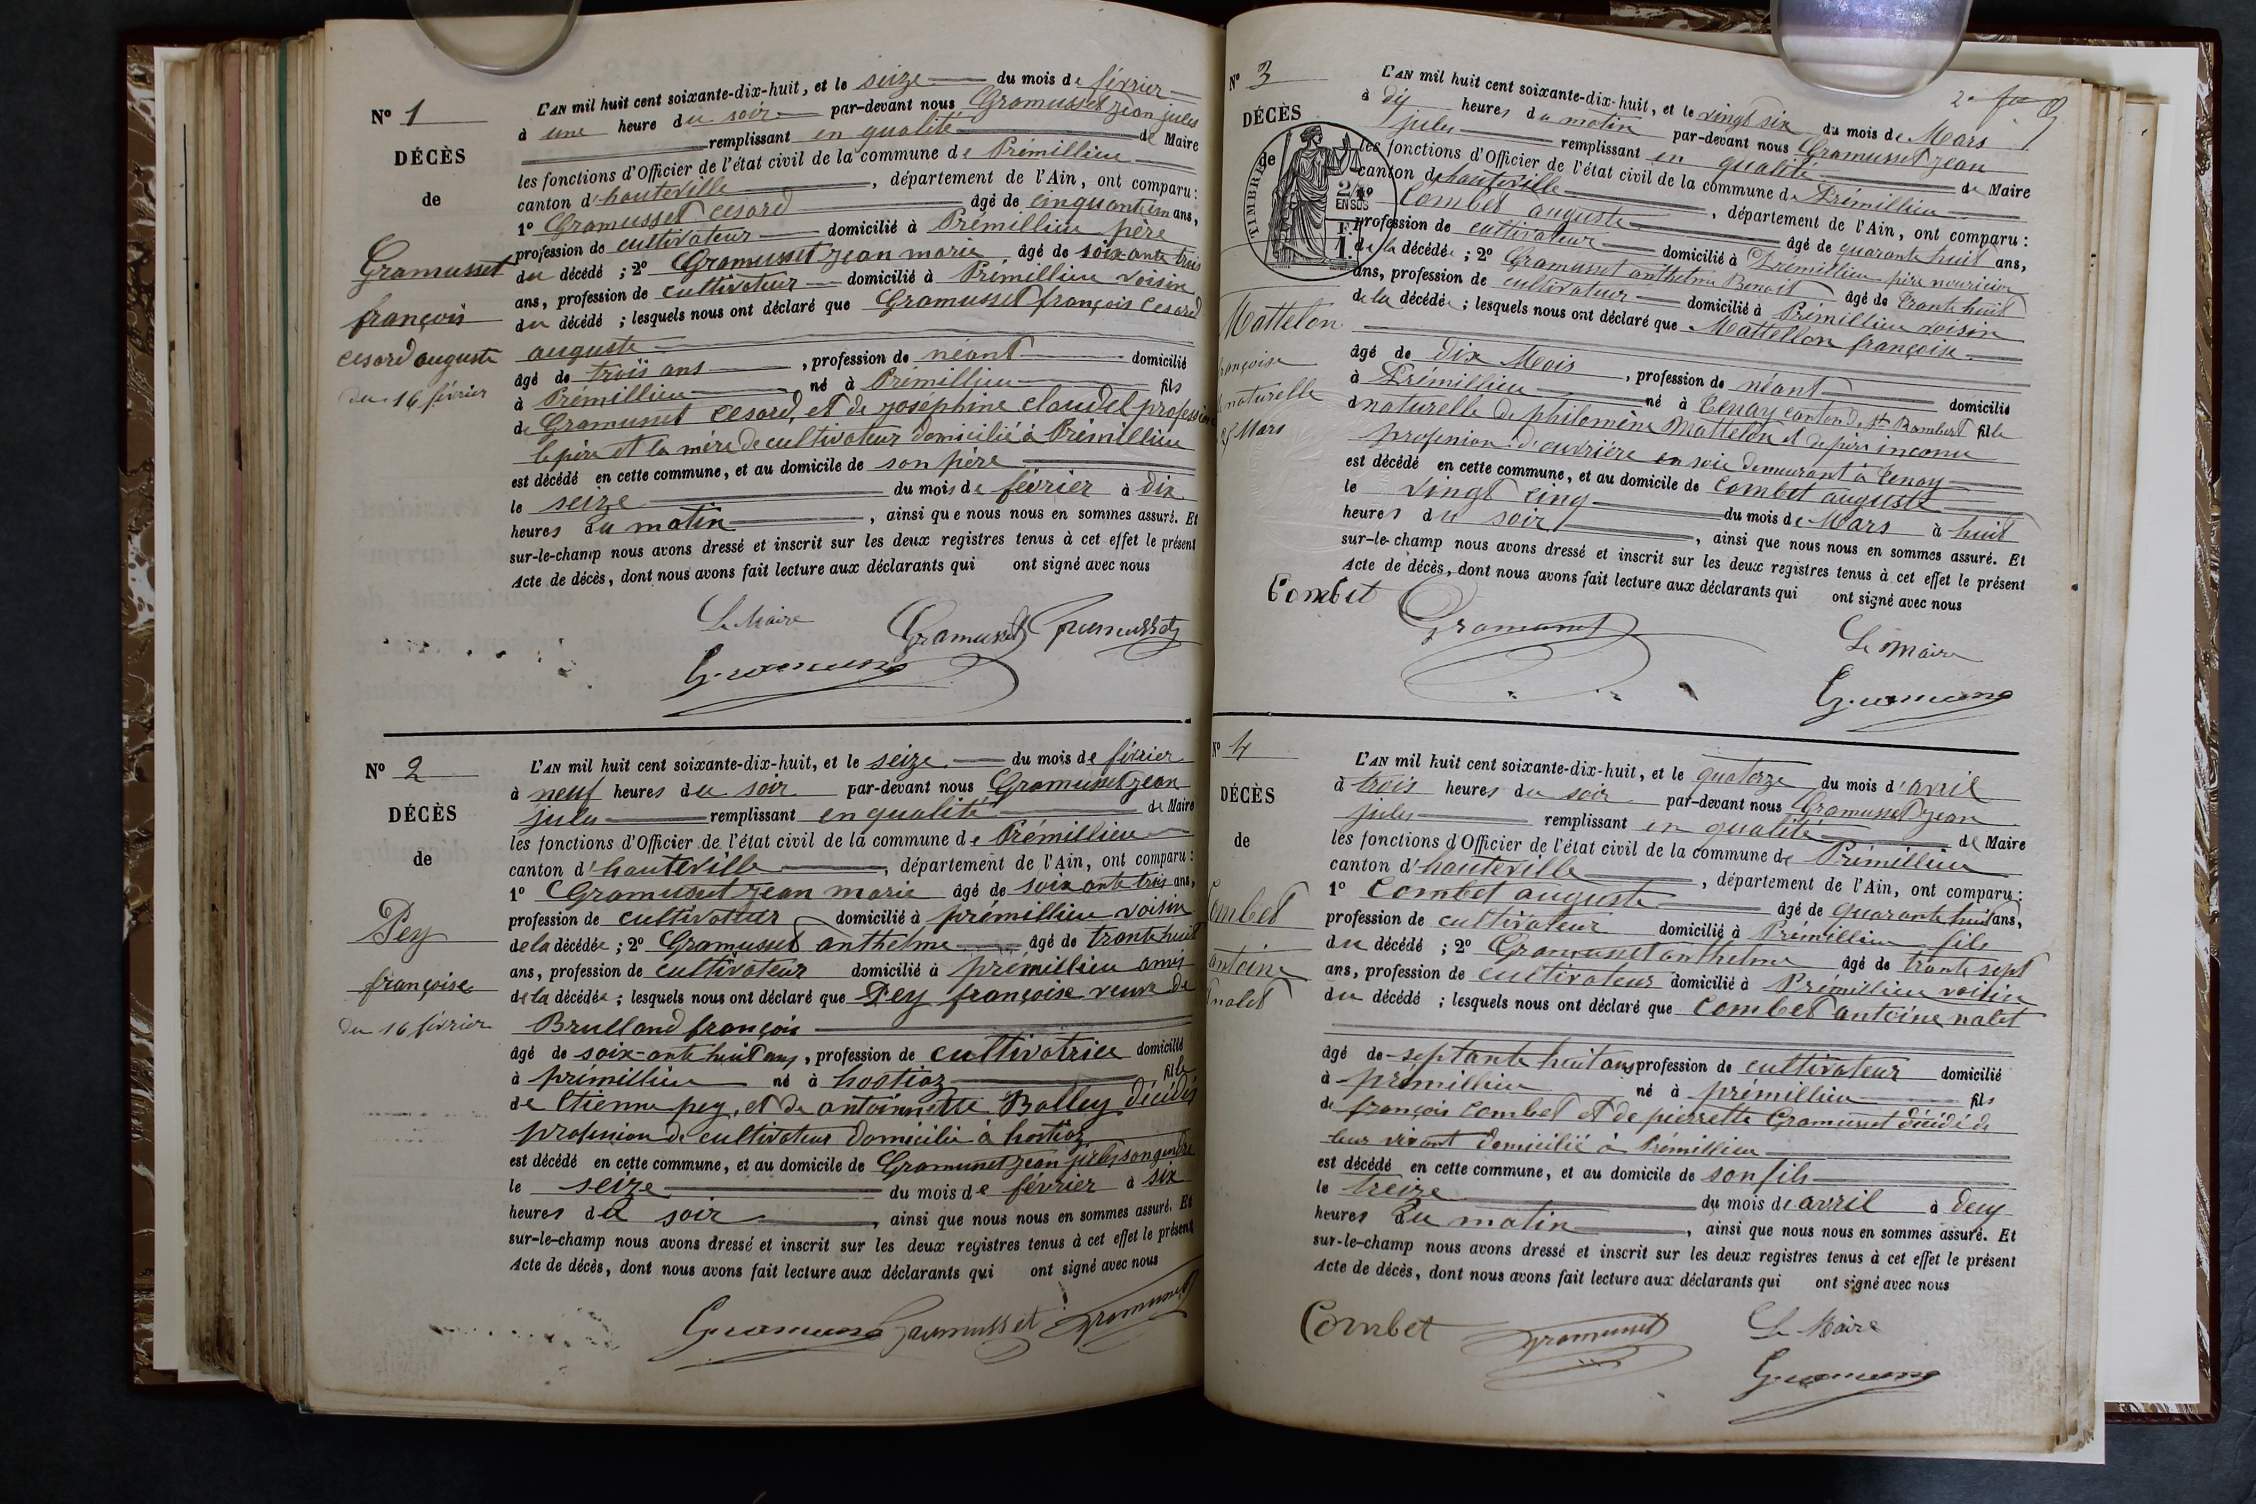 N° 1
DÉCÈS
de
Gramusset
françois
cesard auguste
du 16 février
L'AN mil huit cent soixante-dix-huit, et le seize du mois de février
à une heure du soir par-devant nous Gramusset jean jules
remplissant en qualité de Maire
les fonctions d'Officier de l'état civil de la commune de Prémillieu
canton d'hauteville, département de l'Ain, ont comparu :
1° Gramusset cesard âgé de cinquante un ans,
profession de cultivateur domicilié à Prémillieu père
du décédé ; 2° Gramusset jean marie âgé de soixante trois
ans, profession de cultivateur domicilié à Prémillieu voisin
du décédé ; lesquels nous ont déclaré que Gramusset françois cesard
auguste
âgé de trois ans, profession de néant domicilié
à Prémillieu né à Prémillieu fils
de Gramusset cesard, et de joséphine claudel profession
le père et la mère de cultivateur domicilié à Prémillieu
est décédé en cette commune, et au domicile de son père
le seize du mois de février à dix
heures du matin, ainsi que nous nous en sommes assuré. Et
sur-le-champ nous avons dressé et inscrit sur les deux registres tenus à cet effet le présent
Acte de décès, dont nous avons fait lecture aux déclarants qui ont signé avec nous
Le Maire
Gramusset Gramusset
Gramusset
N° 2
DÉCÈS
de
Pey
françoise
du 16 février
L'AN mil huit cent soixante-dix-huit, et le seize du mois de février
à neuf heures du soir par-devant nous Gramusset jean
jules remplissant en qualité de Maire
les fonctions d'Officier de l'état civil de la commune de Prémillieu
canton d'hauteville, département de l'Ain, ont comparu :
1° Gramusset jean marie âgé de soixante trois ans,
profession de cultivateur domicilié à prémillieu voisin
de la décédée ; 2° Gramusset anthelme âgé de trante huit
ans, profession de cultivateur domicilié à prémillieu amis
de la décédée ; lesquels nous ont déclaré que Pey françoise veuve de
Brulland françois
âgé de soixante huit ans, profession de cultivatrice domicilié
à prémillieu né à hostiaz fille
de Etienne pey, et de antoinnette Balley décédés
profession de cultivateur domicilié à hostiaz
est décédé en cette commune, et au domicile de Gramusset jean jules son gendre
le seize du mois de février à six
heures du soir, ainsi que nous nous en sommes assuré. Et
sur-le-champ nous avons dressé et inscrit sur les deux registres tenus à cet effet le présent
Acte de décès, dont nous avons fait lecture aux déclarants qui ont signé avec nous
Gramusset Gramusset Gramusset
N° 3
DÉCÈS
de
TIMBRE
2/10
EN SUS
F.
1.
Mattelon
françoise
naturelle
25 Mars
L'AN mil huit cent soixante-dix-huit, et le vingt six du mois de Mars
à dix heures du matin par-devant nous Gramusset jean
jules remplissant en qualité de Maire
les fonctions d'Officier de l'état civil de la commune de Prémillieu
canton d'hauteville, département de l'Ain, ont comparu :
1° Combet auguste âgé de quarante huit ans,
profession de cultivateur domicilié à Prémillieu père nouricier
de la décédée ; 2° Gramusset anthelme Benoit âgé de trante huit
ans, profession de cultivateur domicilié à Prémillieu voisin
de la décédée ; lesquels nous ont déclaré que Mattellon françoise
âgé de dix Mois, profession de néant domicilié
à Prémillieu né à Tenay canton de St Rambert fille
naturelle de philomène Mattelon et de père inconnu
profession d'ouvrière en soie demeurant à Tenay
est décédé en cette commune, et au domicile de Combet auguste
le vingt cinq du mois de Mars à huit
heures du soir, ainsi que nous nous en sommes assuré. Et
sur-le-champ nous avons dressé et inscrit sur les deux registres tenus à cet effet le présent
Acte de décès, dont nous avons fait lecture aux déclarants qui ont signé avec nous
Combet Gramusset
Le Maire
Gramusset
N° 4
DÉCÈS
de
Combet
antoine
nalet
L'AN mil huit cent soixante-dix-huit, et le quatorze du mois d'avril
à trois heures du soir par-devant nous Gramusset jean
jules remplissant en qualité de Maire
les fonctions d'Officier de l'état civil de la commune de Prémillieu
canton d'hauteville, département de l'Ain, ont comparu :
1° Combet auguste âgé de quarante huit ans,
profession de cultivateur domicilié à Prémillieu fils
du décédé ; 2° Gramusset anthelme âgé de trante sept
ans, profession de cultivateur domicilié à Prémillieu voisin
du décédé ; lesquels nous ont déclaré que Combet antoine nalet
âgé de septante huit ans profession de cultivateur domicilié
à prémillieu né à prémillieu fils
de françois Combet et de pierrette Gramusset décédé de
leur vivant domicilié à Prémillieu
est décédé en cette commune, et au domicile de son fils
le treize du mois de avril à deux
heures du matin, ainsi que nous nous en sommes assuré. Et
sur-le-champ nous avons dressé et inscrit sur les deux registres tenus à cet effet le présent
Acte de décès, dont nous avons fait lecture aux déclarants qui ont signé avec nous
Combet Gramusset Le Maire
Gramusset